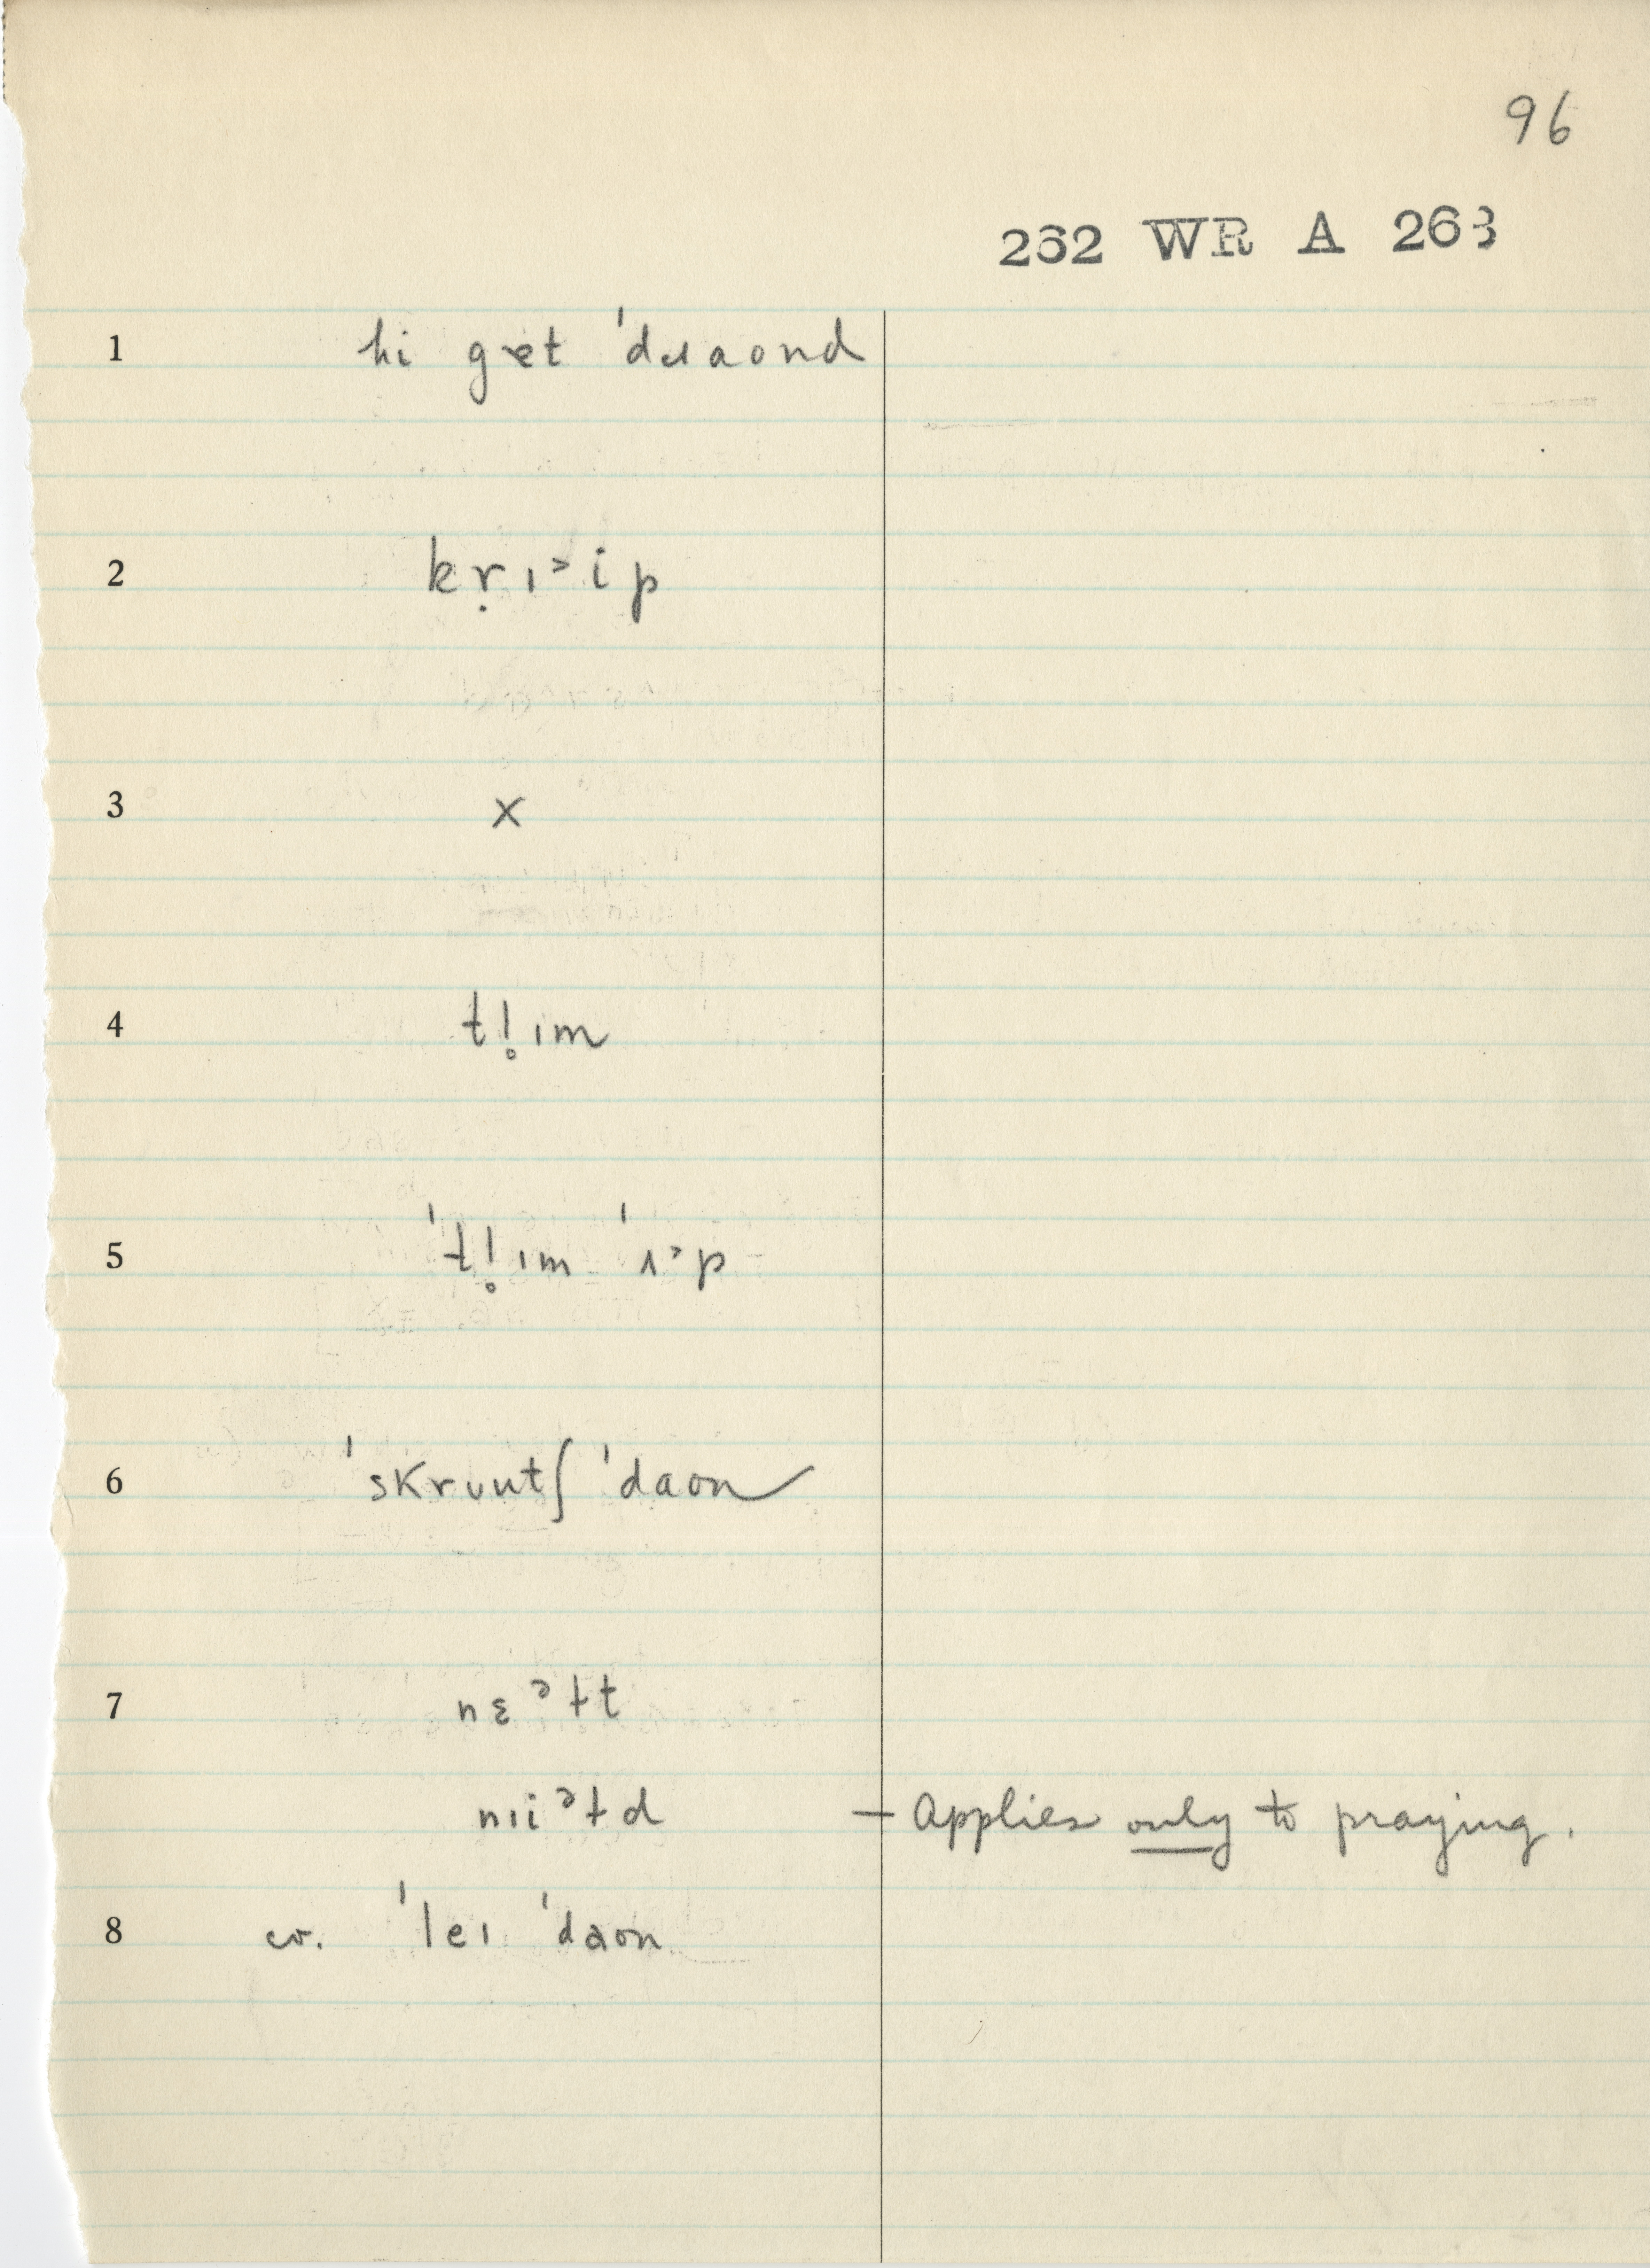 96
262 WR A 263
1 hi gɛt ˈdɹaond
2 kṛɪᵊip
3 x
4 tl̥ɪm
5 ˈtl̥ɪm ˈʌᵊp
6 ˈskrʊutʃ ˈdaon
7 nɛᵊɫt
nɪiᵊɫd — Applies only to praying.
8 cv. ˈleɪ ˈdaon